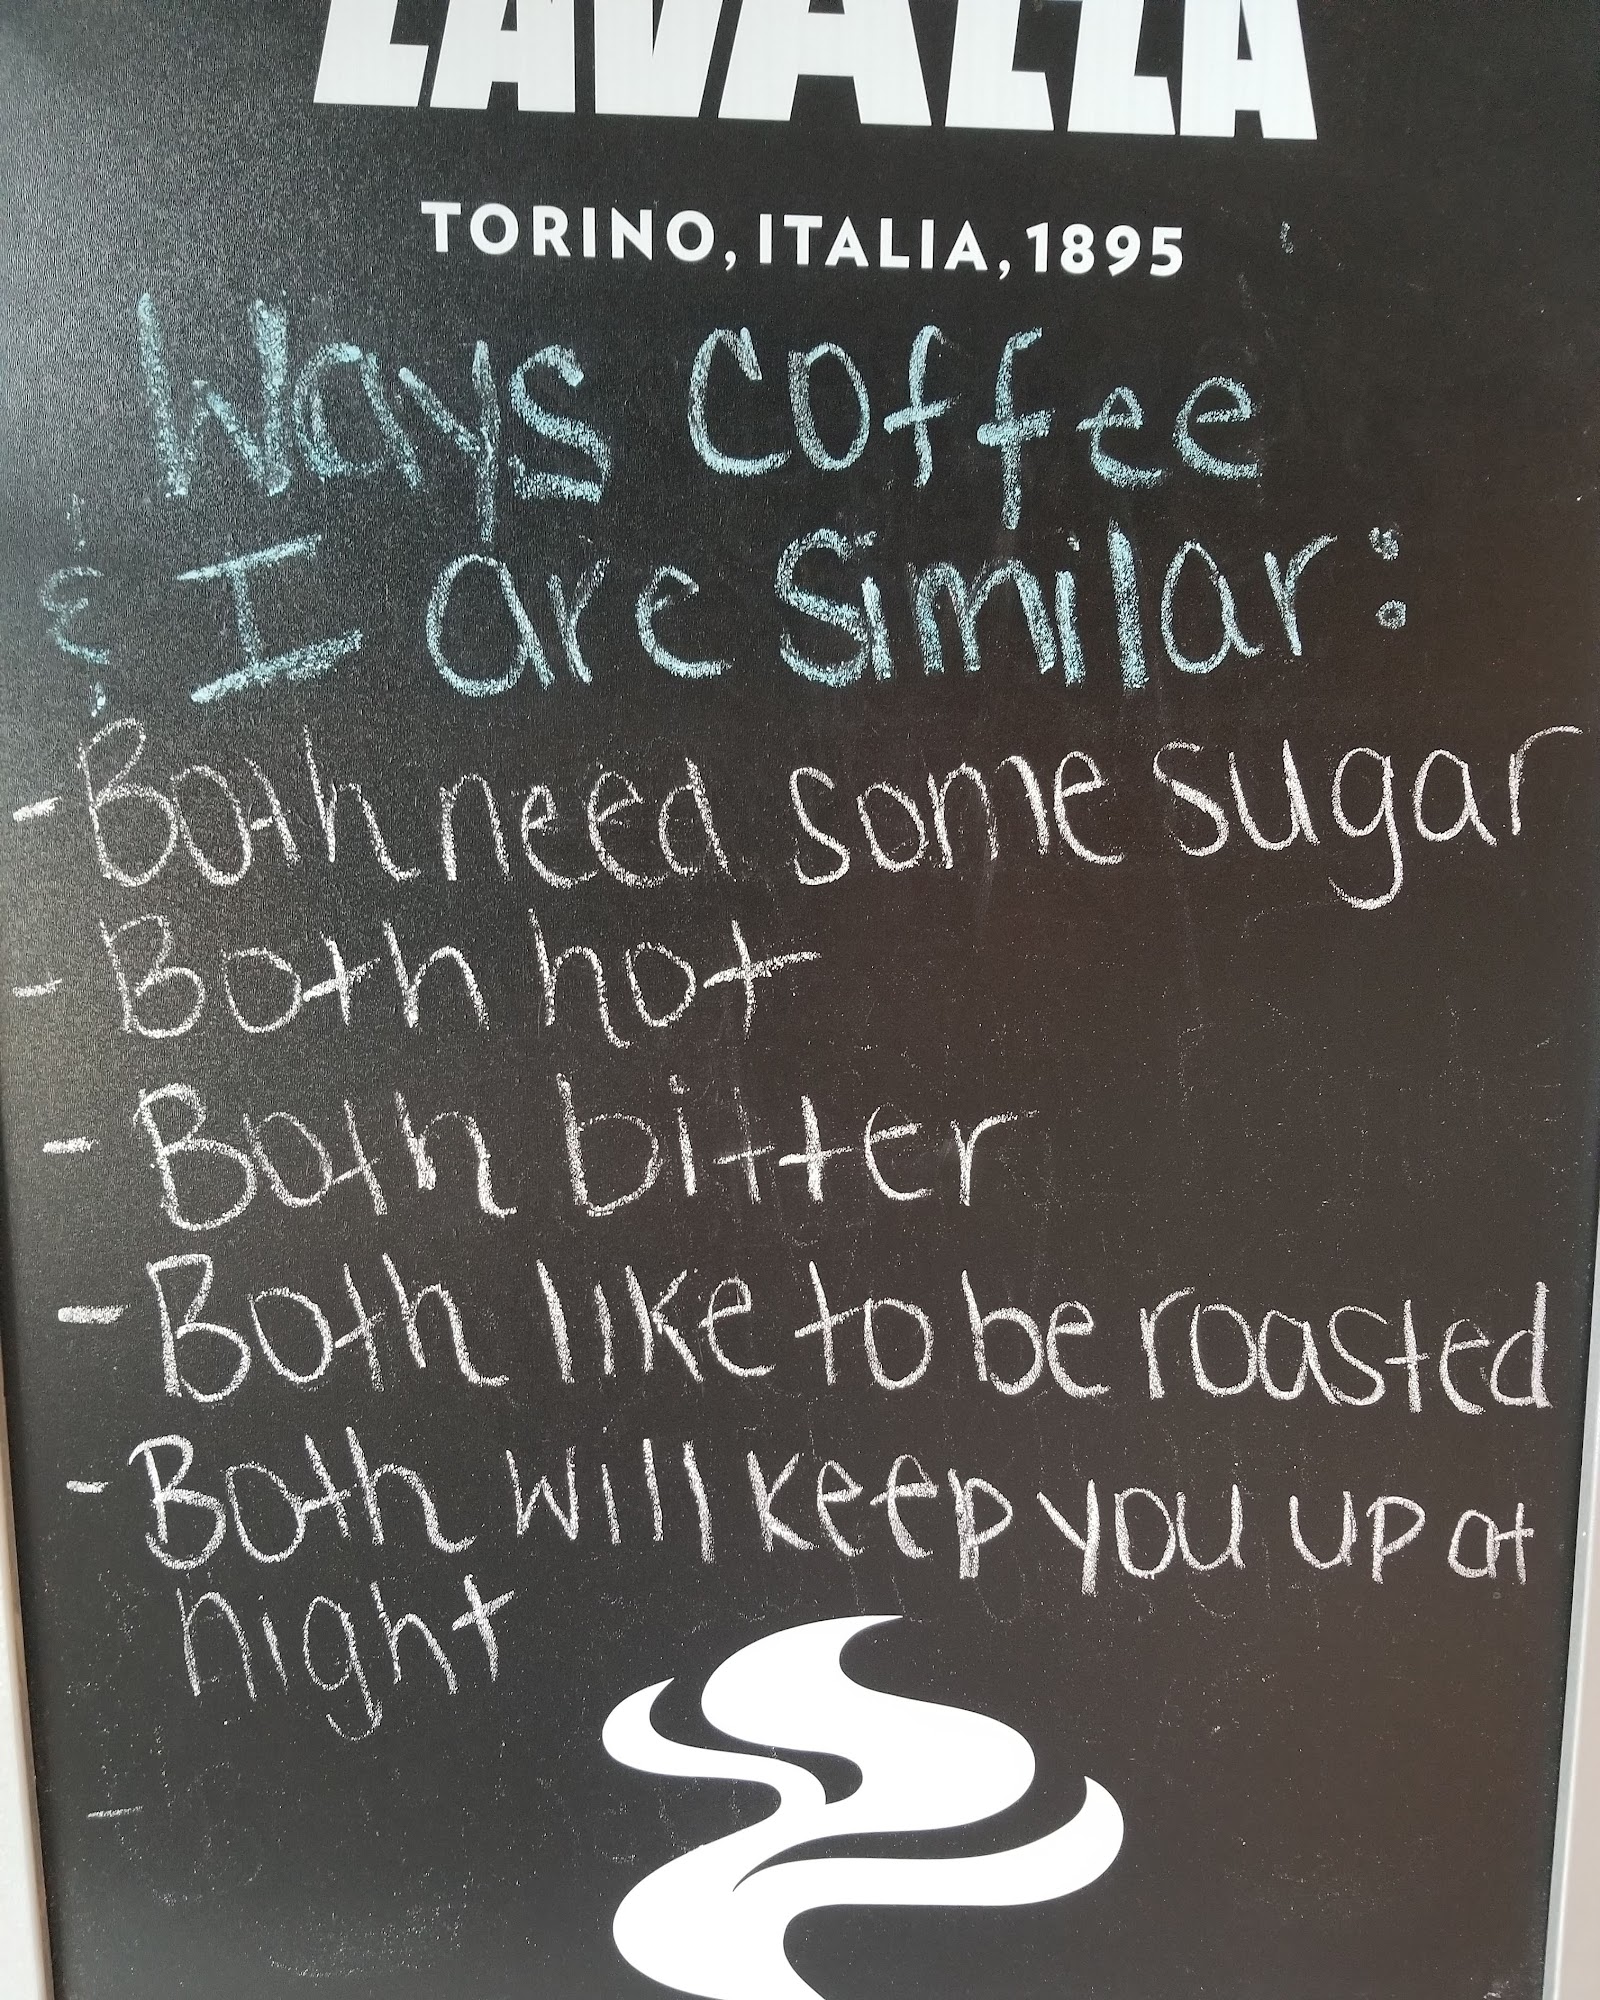 LAVAZZA
TORINO, ITALIA, 1895
Ways coffee
& I are similar:
- Both need some sugar
- Both hot
- Both bitter
- Both like to be roasted
- Both will keep you up at
night
-